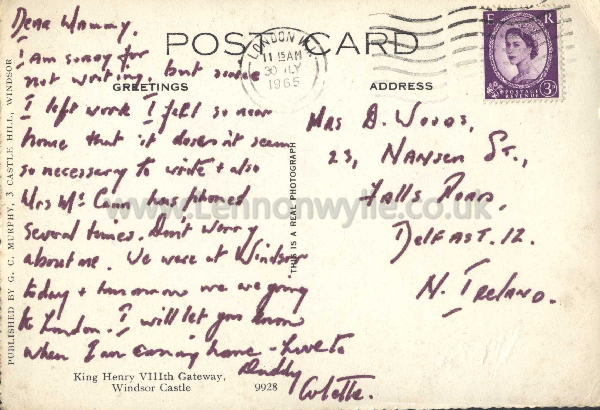 POST CARD
GREETINGS
ADDRESS
Dear Mammy,
I am sorry for
not writing, but since
I left work I felt so near
home that it doesn't seem
so necessary to write + also
Mrs Mc Cann has phoned
several times. Don't worry
about me. We were at Windsor
today + tomorrow we are going
to London. I will let you know
when I am coming home - Love to
Daddy
Colette.
King Henry VIIIth Gateway,
Windsor Castle
9928
PUBLISHED BY G. C. MURPHY, 3 CASTLE HILL, WINDSOR
"THIS IS A REAL PHOTOGRAPH"
LONDON
11 15 AM
30 JLY
1965
E R
POSTAGE
REVENUE
3D
Mrs D. Woods,
23, Nansen St.,
Falls Road,
Belfast. 12.
N. Ireland.
www.Lennonwylie.co.uk